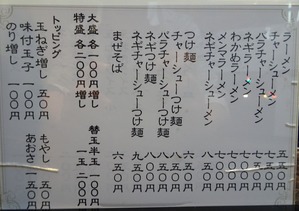 ラーメン
チャーシューメン
バラチャーシューメン
ネギラーメン
わかめラーメン
メンマラーメン
ネギチャーシューメン
つけ麺 六五〇円
チャーシューつけ麺 八五〇円
バラチャーシューつけ麺 八五〇円
ネギつけ麺 八〇〇円
ネギチャーシューつけ麺 九五〇円
まぜそば 六五〇円
大盛 各 一〇〇円増し
特盛 各 二〇〇円増し
替玉半玉 一〇〇円
一玉 二〇〇円
トッピング
玉ねぎ増し 五〇円
味付玉子 一〇〇円
のり増し 一〇〇円
もやし 五〇円
あおさ 一五〇円